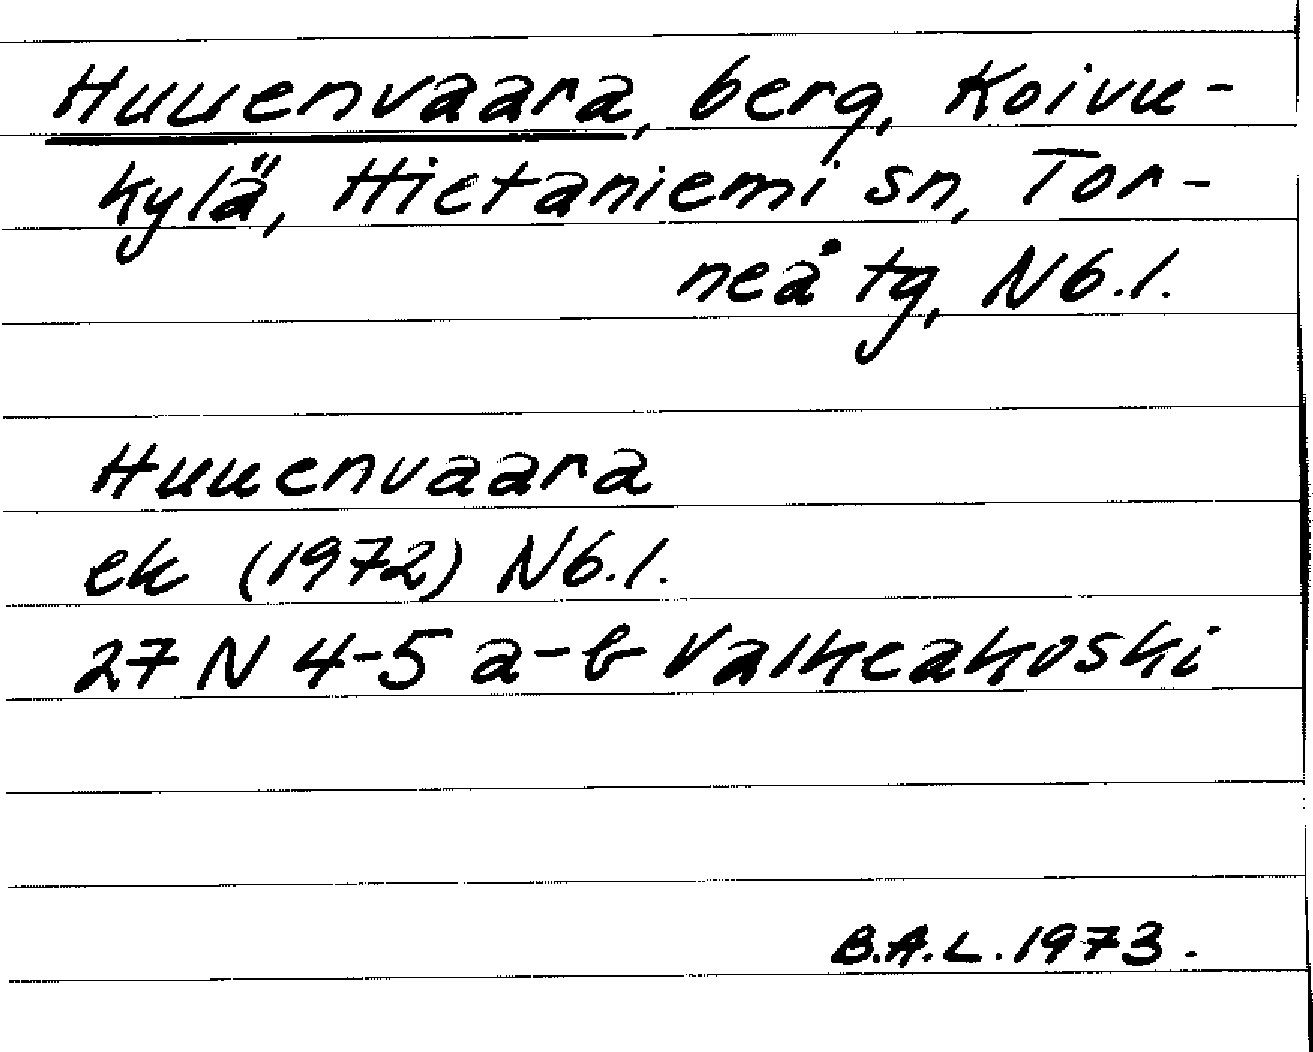 Huuenvaara, berg, Koivu-
kylä, Hietaniemi sn, Tor-
neå tg, Nb.l.
Huuenvaara
ek (1972) Nb.l.
27 N 4-5 a-b Valkeakoski
B.A.L. 1973.